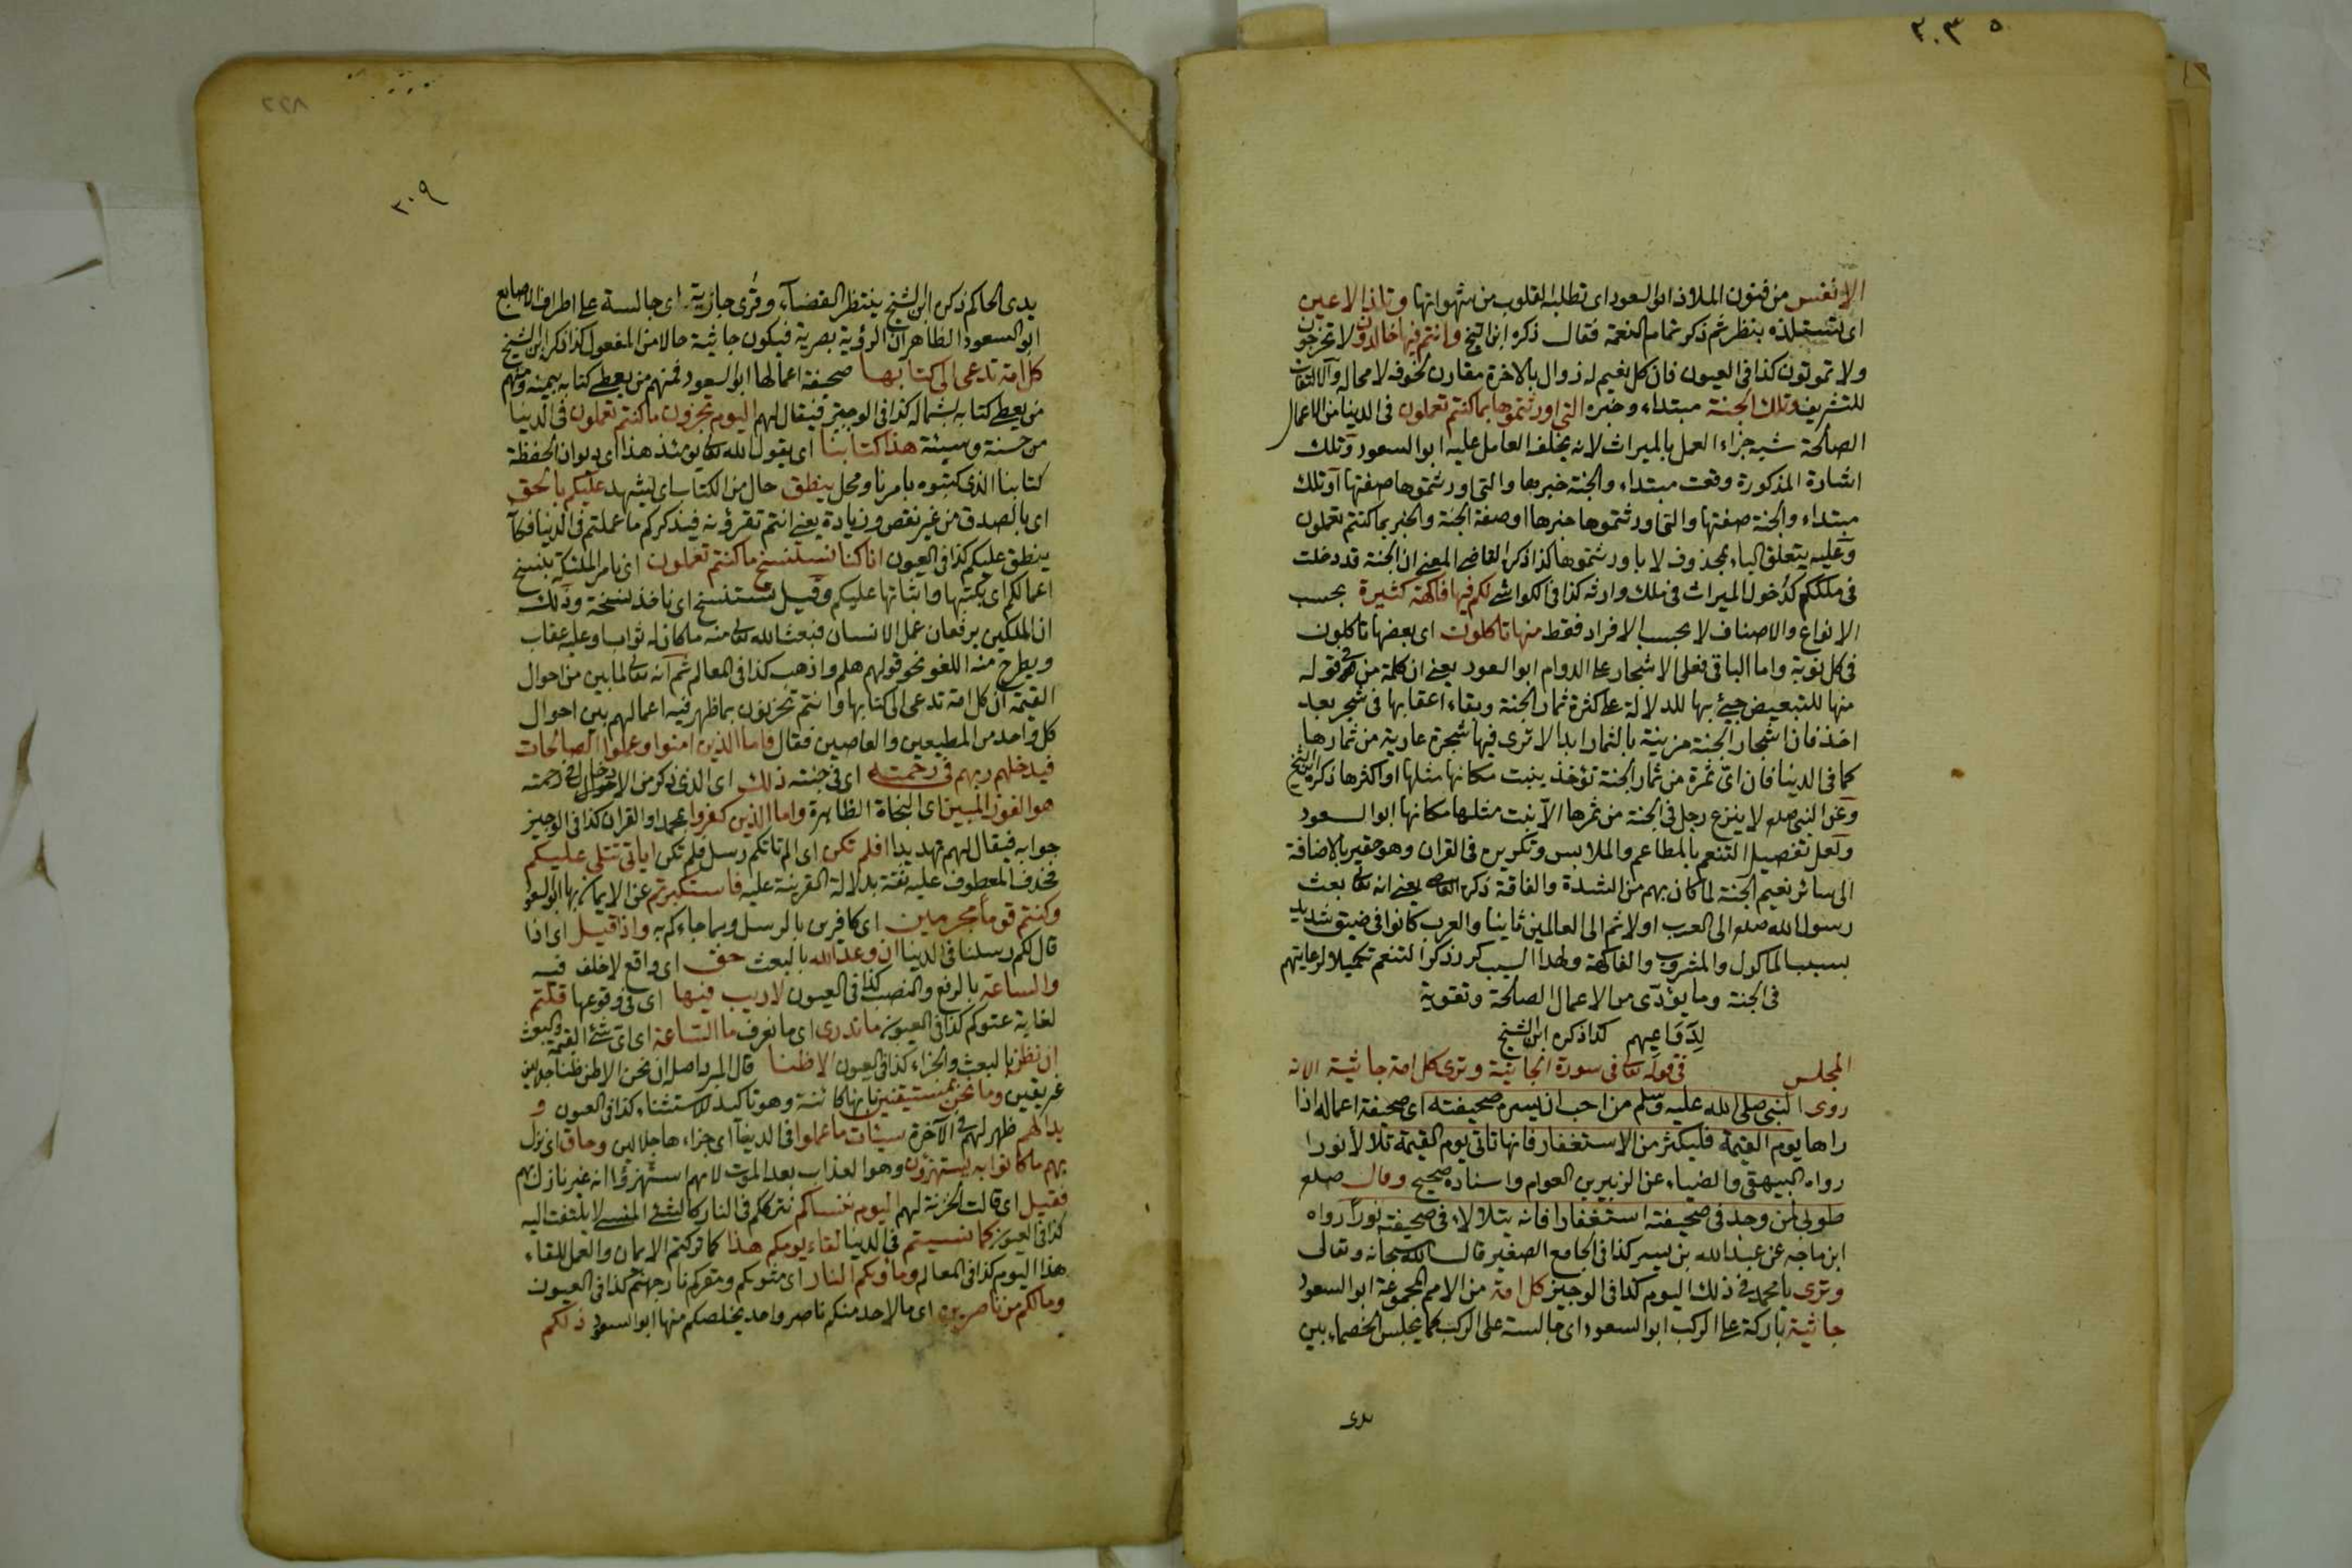 ٣٠٣ ٥
الانفس من فنون الملاذ ابو السعود اى تطلبه القلوب من شهواتها وتلذ الاعين
اى تستلذه بنظر ثم ذكر تمام النعمة فقال ذكره ابن الشيخ وانتم فيها خالدون لا تخرجون
ولا تموتون كذا فى العيون فان كل نعيم له زوال بالاخرة مقارن لخوفه لا محالة والالتفات
للتشريف وتلك الجنة مبتداء وخبره التى اورثتموها بما كنتم تعملون فى الدنيا من الاعمال
الصالحة شبه جزاء العمل بالميراث لانه يخلفه العامل عليه ابو السعود وتلك
اشارة المذكورة وقعت مبتداء والجنة خبرها والتى اورثتموها صفتها آو تلك
مبتداء والجنة صفتها والتى اورثتموها خبرها او صفة الجنة والخبر بما كنتم تعملون
وعليه يتعلق الباء بمحذوف لا باورثتموها كذا ذكر القاضى المعنى ان الجنة قد دخلت
فى ملككم كدخول الميراث فى ملك وارثه كذا فى الكواشى لكم فيها فاكهة كثيرة بحسب
الانواع والاصناف لا بحسب الافراد فقط منها تاكلون اى بعضها تاكلون
فى كل نوبة واما الباقى فعلى الاشجار على الدوام ابو السعود يعنى ان كلمة من فى قوله
منها للتبعيض جيئ بها للدلالة على كثرة ثمار الجنة وبقاء اعقابها فى شجر بعد
اخذ فان اشجار الجنة مزينة بالثمار ابدا لا ترى فيها شجرة عارية من ثمارها
كما فى الدنيا فان اى ثمرة من ثمار الجنة تؤخذ ينبت مكانها مثلها او اكثرها ذكره ابن الشيخ
وعن النبى صلعم لا ينزع رجل فى الجنة من ثمرها الا نبت مثلها مكانها ابو السعود
ولعل تفصيل التنعم بالمطاعم والملابس وتكريره فى القران وهو حقير بالاضافة
الى سائر نعيم الجنة لما كان بهم من الشدة والفاقة ذكره القاضى يعنى انه تعالى بعث
رسول الله صلعم الى العرب اولا ثم الى العالمين ثانيا والعرب كانوا فى ضيق شديد
بسبب الماكول والمشروب والفاكهة ولهذا السبب كرر ذكر التنعم تكميلا لرعايتهم
فى الجنة وما يؤدى من الاعمال الصالحة وتقوية
لدواعيهم كذا ذكره ابن الشيخ
المجلس فى قوله تعالى فى سورة الجاثية وترى كل امة جاثية الاية
روى النبى صلى الله عليه وسلم من احب ان يسره صحيفته اى صحيفة اعماله اذا
راها يوم القيمة فليكثر من الاستغفار فانها تاتى يوم القيمة تلألأ نورا
رواه البيهقى والضياء عن الزبير بن العوام واسناده صحيح وقال صلعم
طوبى لمن وجد فى صحيفته استغفارا فانه يتلالاء فى صحيفته نورا رواه
ابن ماجه عن عبد الله بن يسر كذا فى الجامع الصغير قال الله سبحانه وتعالى
وترى يا محمد فى ذلك اليوم كذا فى الوجيز كل امة من الامم المجموعة ابو السعود
جاثية باركة على الركب ابو السعود اى جالسة على الركب كما يجلس الخصماء بين
يدى
٢٢٨
٣٠٩
يدى الحاكم ذكره ابن الشيخ ينتظر القضاء وقرى جاذية اى جالسة على اطراف الاصابع
ابو السعود الظاهر ان الرؤية بصرية فيكون جاثية حالا من المفعول كذا ذكر ابن الشيخ
كل امة تدعى الى كتابها صحيفة اعمالها ابو السعود فمنهم من يعطى كتابه بيمينه ومنهم
من يعطى كتابه بشماله كذا فى الوجيز فيقال لهم اليوم تجزون ما كنتم تعملون فى الدنيا
من حسنة وسيئة هذا كتابنا اى يقول الله تعالى يومئذ هذا اى ديوان الحفظة
كتابنا الذى كتبوه بامرنا ومحل ينطق حال من الكتاب اى يشهد عليكم بالحق
اى بالصدق من غير نقص وزيادة يعنى انتم تقرؤنه فيذكركم ما عملتم فى الدنيا فكانه
ينطق عليكم كذا فى العيون انا كنا نستنسخ ما كنتم تعملون اى نامر الملئكة بنسخ
اعمالكم اى بكتبها واثباتها عليكم وقيل نستنسخ اى ناخذ نسخة وذلك
ان الملكين يرفعان عمل الانسان فيثبت الله تعالى منه ما كان له ثواب او عليه عقاب
ويطرح منه اللغو نحو قولهم هلم واذهب كذا فى المعالم ثم انه تعالى لما بين من احوال
القيمة ان كل امة تدعى الى كتابها وانتم تجزون بما ظهر فيه اعمالهم بين احوال
كل واحد من المطيعين والعاصين فقال فاما الذين امنوا وعملوا الصالحات
فيدخلهم ربهم فى رحمته اى فى جنته ذلك اى الذى ذكر من الادخال فى رحمته
هو الفوز المبين اى النجاة الظاهرة واما الذين كفروا بمحمد والقران كذا فى الوجيز
جوابه فيقال لهم تهديدا افلم تكن اى الم تاتكم رسل فلم تكن اياتى تتلى عليكم
فحذف المعطوف عليه ثقة بدلالة القرينة عليه فاستكبرتم عن الايمان بها ابو السعود
وكنتم قوما مجرمين اى كافرين بالرسل وبما جاءكم به واذا قيل اى اذا
قال لكم رسلنا فى الدنيا ان وعد الله بالبعث حق اى واقع لا خلف فيه
والساعة بالرفع والنصب كذا فى العيون لا ريب فيها اى فى وقوعها قلتم
لغاية عتوكم كذا فى العيون ما ندرى اى ما نعرف ما الساعة اى اى شئ القيمة والبعث
ان نظن بالبعث والجزاء كذا فى العيون الا ظنا قال المبرد اصله ان نحن الا نظن ظنا جلالين
وما نحن بمستيقنين بانها كائنة وهو تاكيد للاستثناء كذا فى العيون و
بدا لهم ظهر لهم فى الآخرة سيئات ما عملوا فى الدنيا اى جزاءها جلالين وحاق اى نزل
بهم ما كانوا به يستهزؤن وهو العذاب بعد الموت لانهم استهزؤا انه غير نازل بهم
فقيل اى قالت الخزنة لهم اليوم ننساكم نترككم فى النار كالشئ المنسى لا يلتفت اليه
كذا فى العيون كما نسيتم فى الدنيا لقاء يومكم هذا كما تركتم الايمان والعمل للقاء
هذا اليوم كذا فى المعالم وماويكم النار اى مثويكم ومقركم نار جهنم كذا فى العيون
وما لكم من ناصرين اى ما لاحد منكم ناصر واحد يخلصكم منها ابو السعود ذلكم